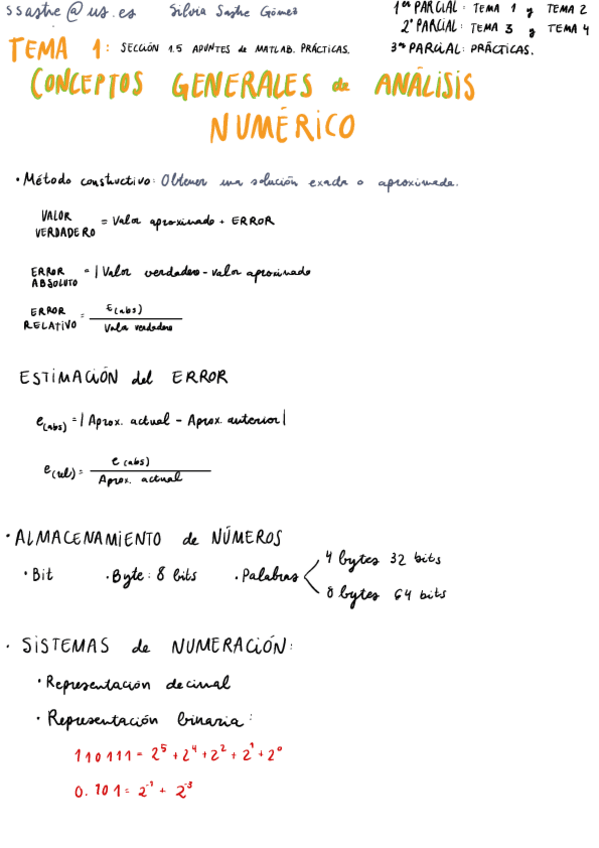 ssastre@us.es Silvia Sastre Gómez
1er PARCIAL: TEMA 1 y TEMA 2
2º PARCIAL: TEMA 3 y TEMA 4
3er PARCIAL: PRÁCTICAS.
TEMA 1: SECCIÓN 1.5 APUNTES de MATLAB. PRÁCTICAS.
CONCEPTOS GENERALES de ANÁLISIS
NUMÉRICO
· Método constructivo: Obtener una solución exacta o aproximada.
VALOR VERDADERO = Valor aproximado + ERROR
ERROR ABSOLUTO = | Valor verdadero - valor aproximado
ERROR RELATIVO = E(abs) / Valor verdadero
ESTIMACIÓN del ERROR
e(abs) = | Aprox. actual - Aprox. anterior |
e(rel) = e(abs) / Aprox. actual
· ALMACENAMIENTO de NÚMEROS
· Bit · Byte: 8 bits · Palabras
4 bytes 32 bits
8 bytes 64 bits
· SISTEMAS de NUMERACIÓN:
· Representación decimal
· Representación binaria:
110111 = 2⁵ + 2⁴ + 2² + 2¹ + 2⁰
0.101 = 2⁻¹ + 2⁻³